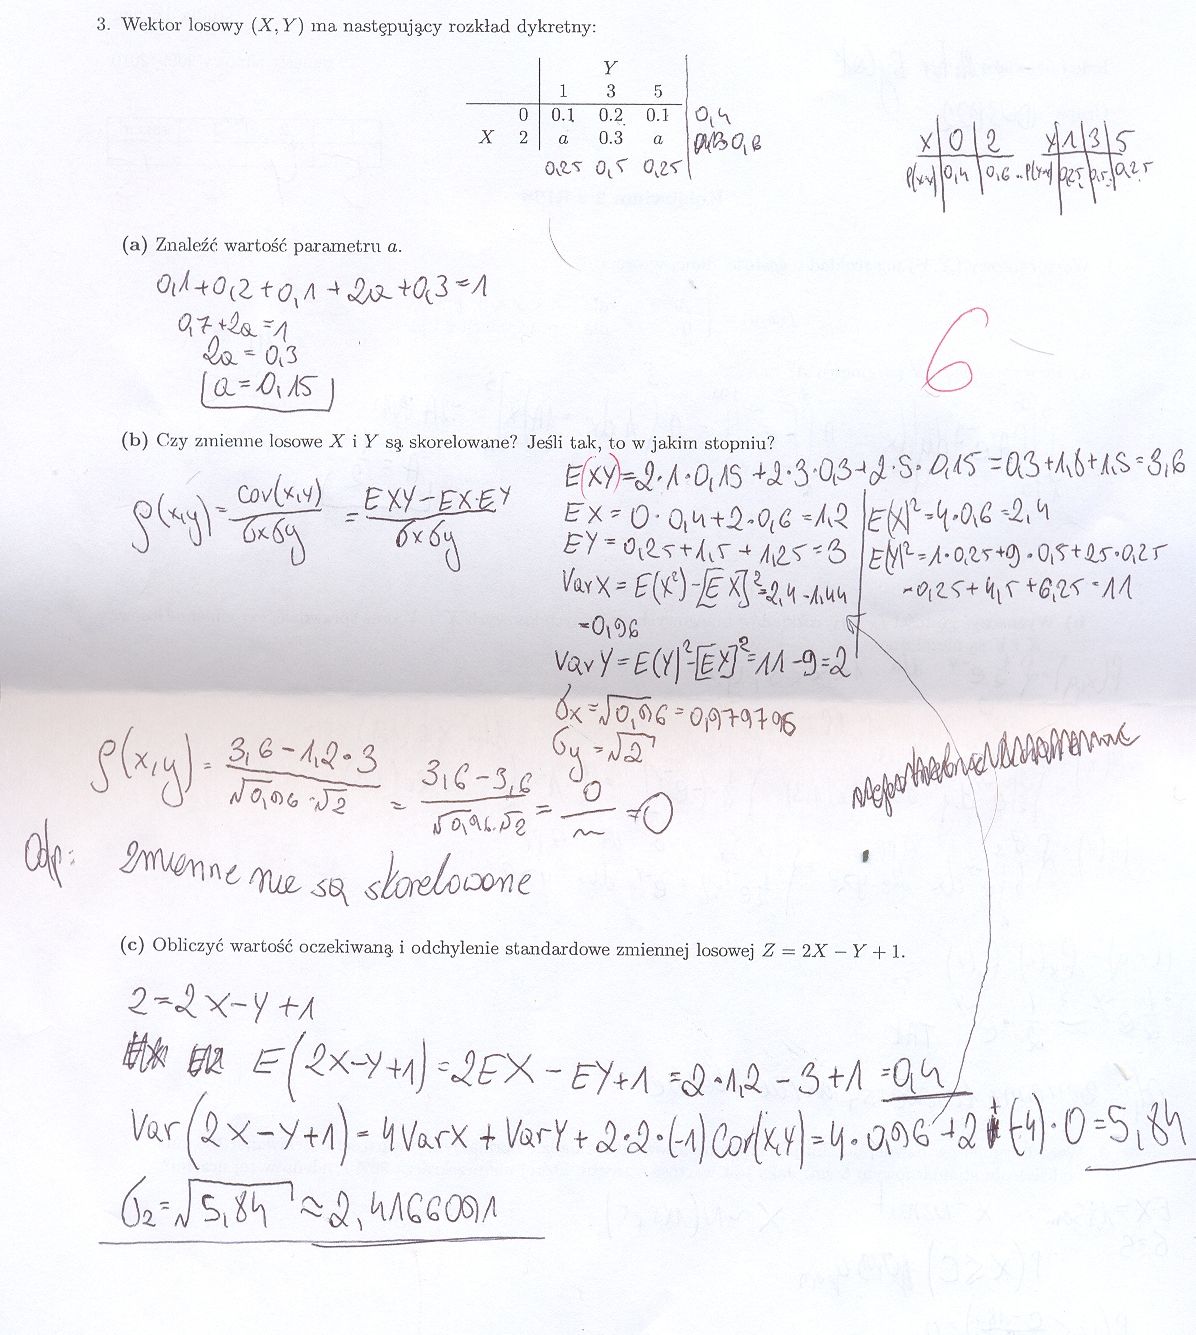 3. Wektor losowy (X, Y) ma następujący rozkład dykretny:
Y
1 3 5
0 0.1 0.2 0.1 0,4
X 2 a 0.3 a 0,6
0,25 0,5 0,25
X 0 2
P(X=x) 0,4 0,6
Y 1 3 5
P(Y=y) 0,25 0,5 0,25
(a) Znaleźć wartość parametru a.
0,1+0,2+0,1+2a+0,3=1
0,7+2a=1
2a=0,3
a=0,15
6
(b) Czy zmienne losowe X i Y są skorelowane? Jeśli tak, to w jakim stopniu?
ρ(x,y) = cov(x,y) / σxσy = EXY-EX·EY / σxσy
E(XY)=2·1·0,15+2·3·0,3+2·5·0,15=0,3+1,8+1,5=3,6
EX=0·0,4+2·0,6=1,2
E(X)²=4·0,6=2,4
EY=0,25+1,5+1,25=3
E(Y)²=1·0,25+9·0,5+25·0,25
=0,25+4,5+6,25=11
VarX=E(X²)-[EX]²=2,4-1,44
=0,96
VarY=E(Y)²-[EY]²=11-9=2
σx=√0,96=0,979796
σy=√2
ρ(x,y) = 3,6-1,2·3 / √0,96·√2 = 3,6-3,6 / √0,96·√2 = 0 / ~ = 0
Odp: zmienne nie są skorelowane
(c) Obliczyć wartość oczekiwaną i odchylenie standardowe zmiennej losowej Z = 2X − Y + 1.
Z=2X-Y+1
E(2X-Y+1)=2EX-EY+1=2·1,2-3+1=0,4
Var(2X-Y+1)=4VarX+VarY+2·2·(-1)Cov(X,Y)=4·0,96+2+(-4)·0=5,84
σz=√5,84≈2,4166091